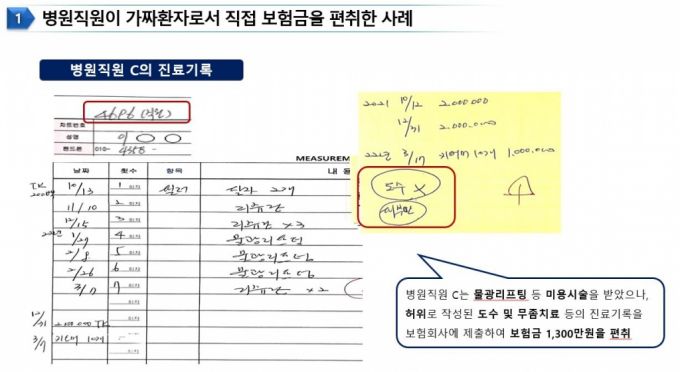 1 병원직원이 가짜환자로서 직접 보험금을 편취한 사례
병원직원 C의 진료기록
4686 (직원)
차트번호
성명 이 ○ ○
핸드폰 010-
MEASUREM
날짜 횟수 항목 내 용
10/13 1 회차 필러
11/10 2 회차 리쥬란
12/15 3 회차 리쥬란 ×3
22년 1/29 4 회차 물광리프팅
2/8 5 회차 물광리프팅
2/26 6 회차 물광리프팅
3/17 7 회차 리쥬란 ×2
12/31
3/17
2021 10/12 2.000.000
12/31 2.000.000
22년 3/17 10개 1.000.000
도수 ×
피부만
병원직원 C는 물광리프팅 등 미용시술을 받았으나,
허위로 작성된 도수 및 무좀치료 등의 진료기록을
보험회사에 제출하여 보험금 1,300만원을 편취